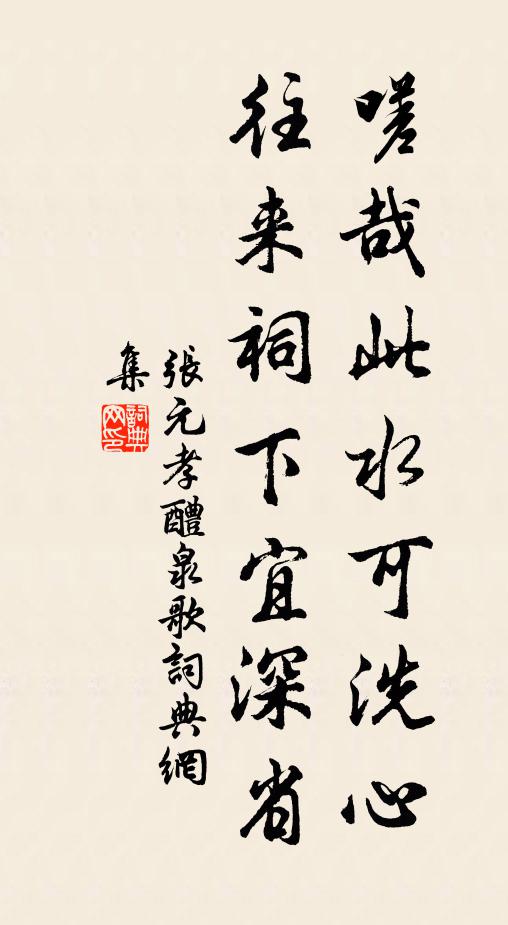 嗟哉此水可洗心
往来祠下宜深省
張元孝醴泉歌詞典網
集
詞典
网印